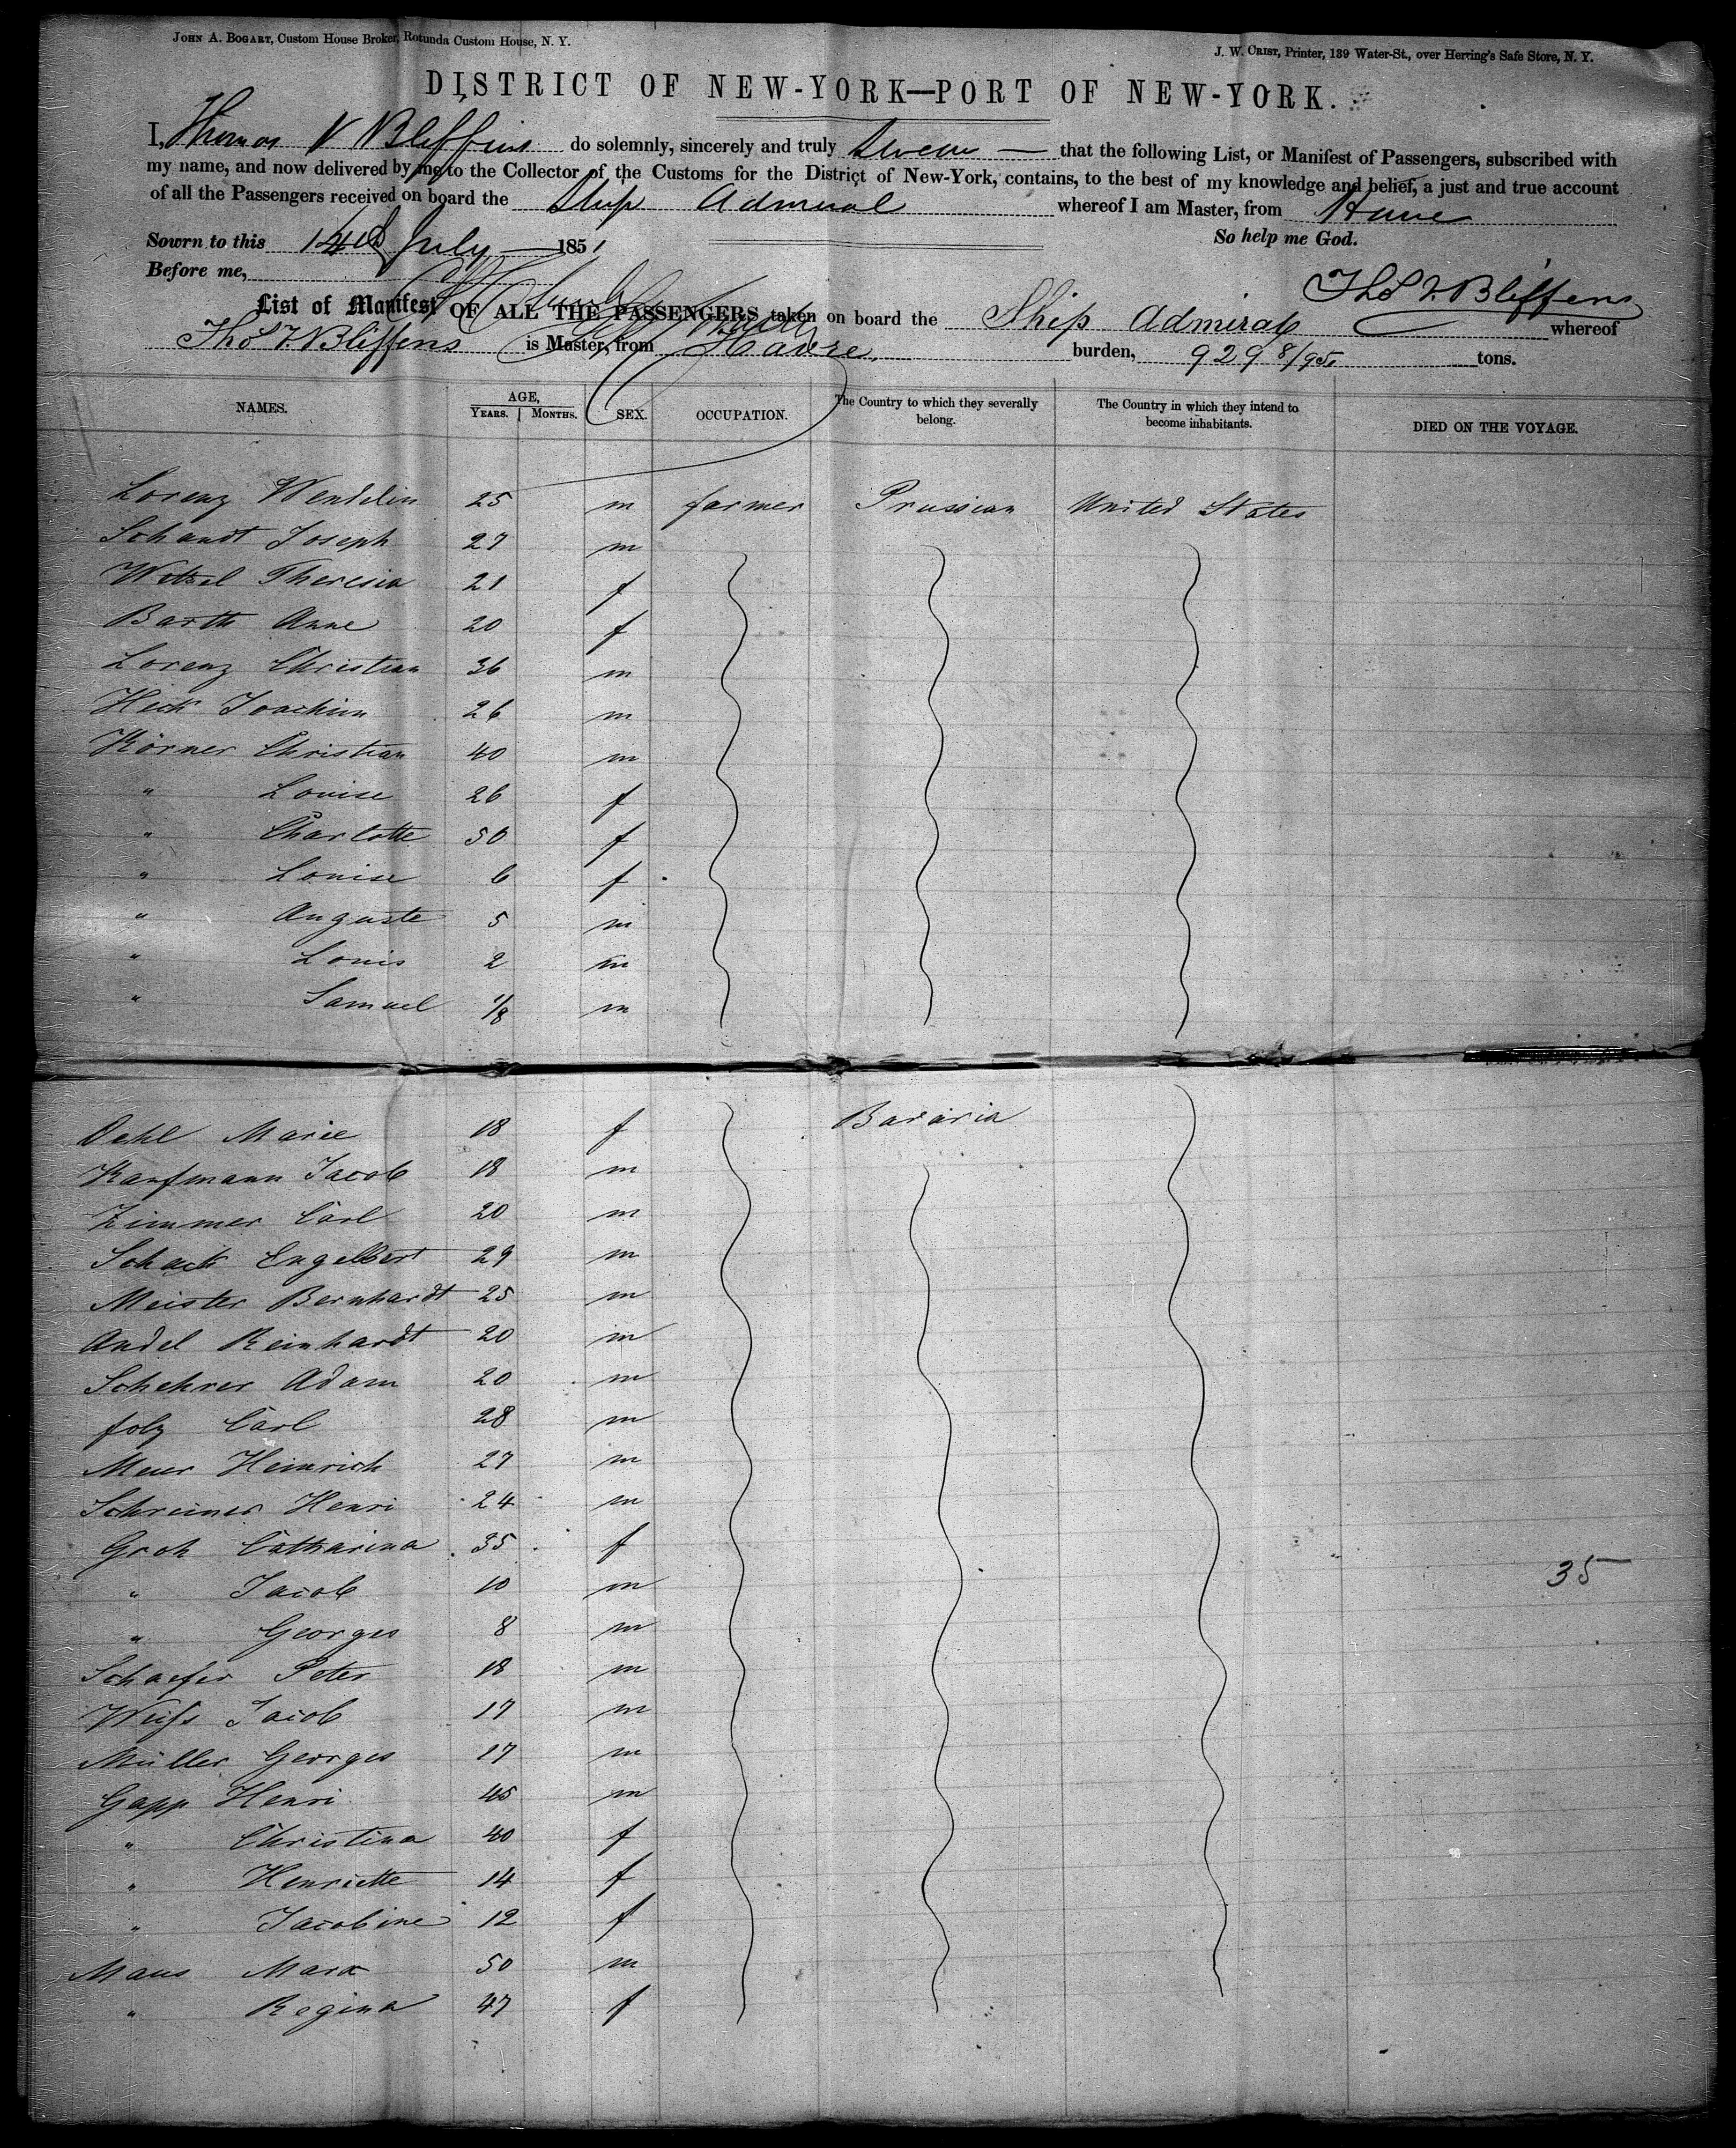 JOHN A. BOGART, Custom House Broker, Rotunda Custom House, N. Y.
J. W. CRIST, Printer, 139 Water-St., over Herring's Safe Store, N. Y.
DISTRICT OF NEW-YORK—PORT OF NEW-YORK.
I, Thomas V Bleffins do solemnly, sincerely and truly swear — that the following List, or Manifest of Passengers, subscribed with
my name, and now delivered by me to the Collector of the Customs for the District of New-York, contains, to the best of my knowledge and belief, a just and true account
of all the Passengers received on board the Ship Admiral whereof I am Master, from Havre
So help me God.
Sowrn to this 14th July 1851
Before me,
Tho S V. Bleffens
List of Manifest OF ALL THE PASSENGERS taken on board the Ship Admiral whereof
Tho S V Bleffens is Master, from Havre, burden, 929 8/95 tons.
NAMES. AGE, YEARS. MONTHS. SEX. OCCUPATION. The Country to which they severally belong. The Country in which they intend to become inhabitants. DIED ON THE VOYAGE.
Lorenz Wendelin 25 m farmer Prussian United States
Schandt Joseph 27 m
Wetzel Theresia 21 f
Barth Anne 20 f
Lorenz Christian 36 m
Heck Joachim 26 m
Körner Christian 40 m
" Louise 26 f
" Charlotte 50 f
" Louise 6 f
" Auguste 5 m
" Louis 2 m
" Samuel 1/8 m
Dehl Marie 18 f Bavaria
Kaufmann Jacob 18 m
Zimmer Carl 20 m
Schack Engelbert 29 m
Meister Bernhardt 25 m
Andel Reinhardt 20 m
Schehrer Adam 20 m
folz Carl 28 m
Meier Heinrich 27 m
Schreiner Henri 24 m
Groh Catharina 35 f
" Jacob 10 m 35
" Georges 8 m
Schaefer Peter 18 m
Weiſs Jacob 17 m
Müller Georges 17 m
Gapp Henri 45 m
" Christina 40 f
" Henriette 14 f
" Jacobine 12 f
Maus Marx 50 m
" Regina 47 f